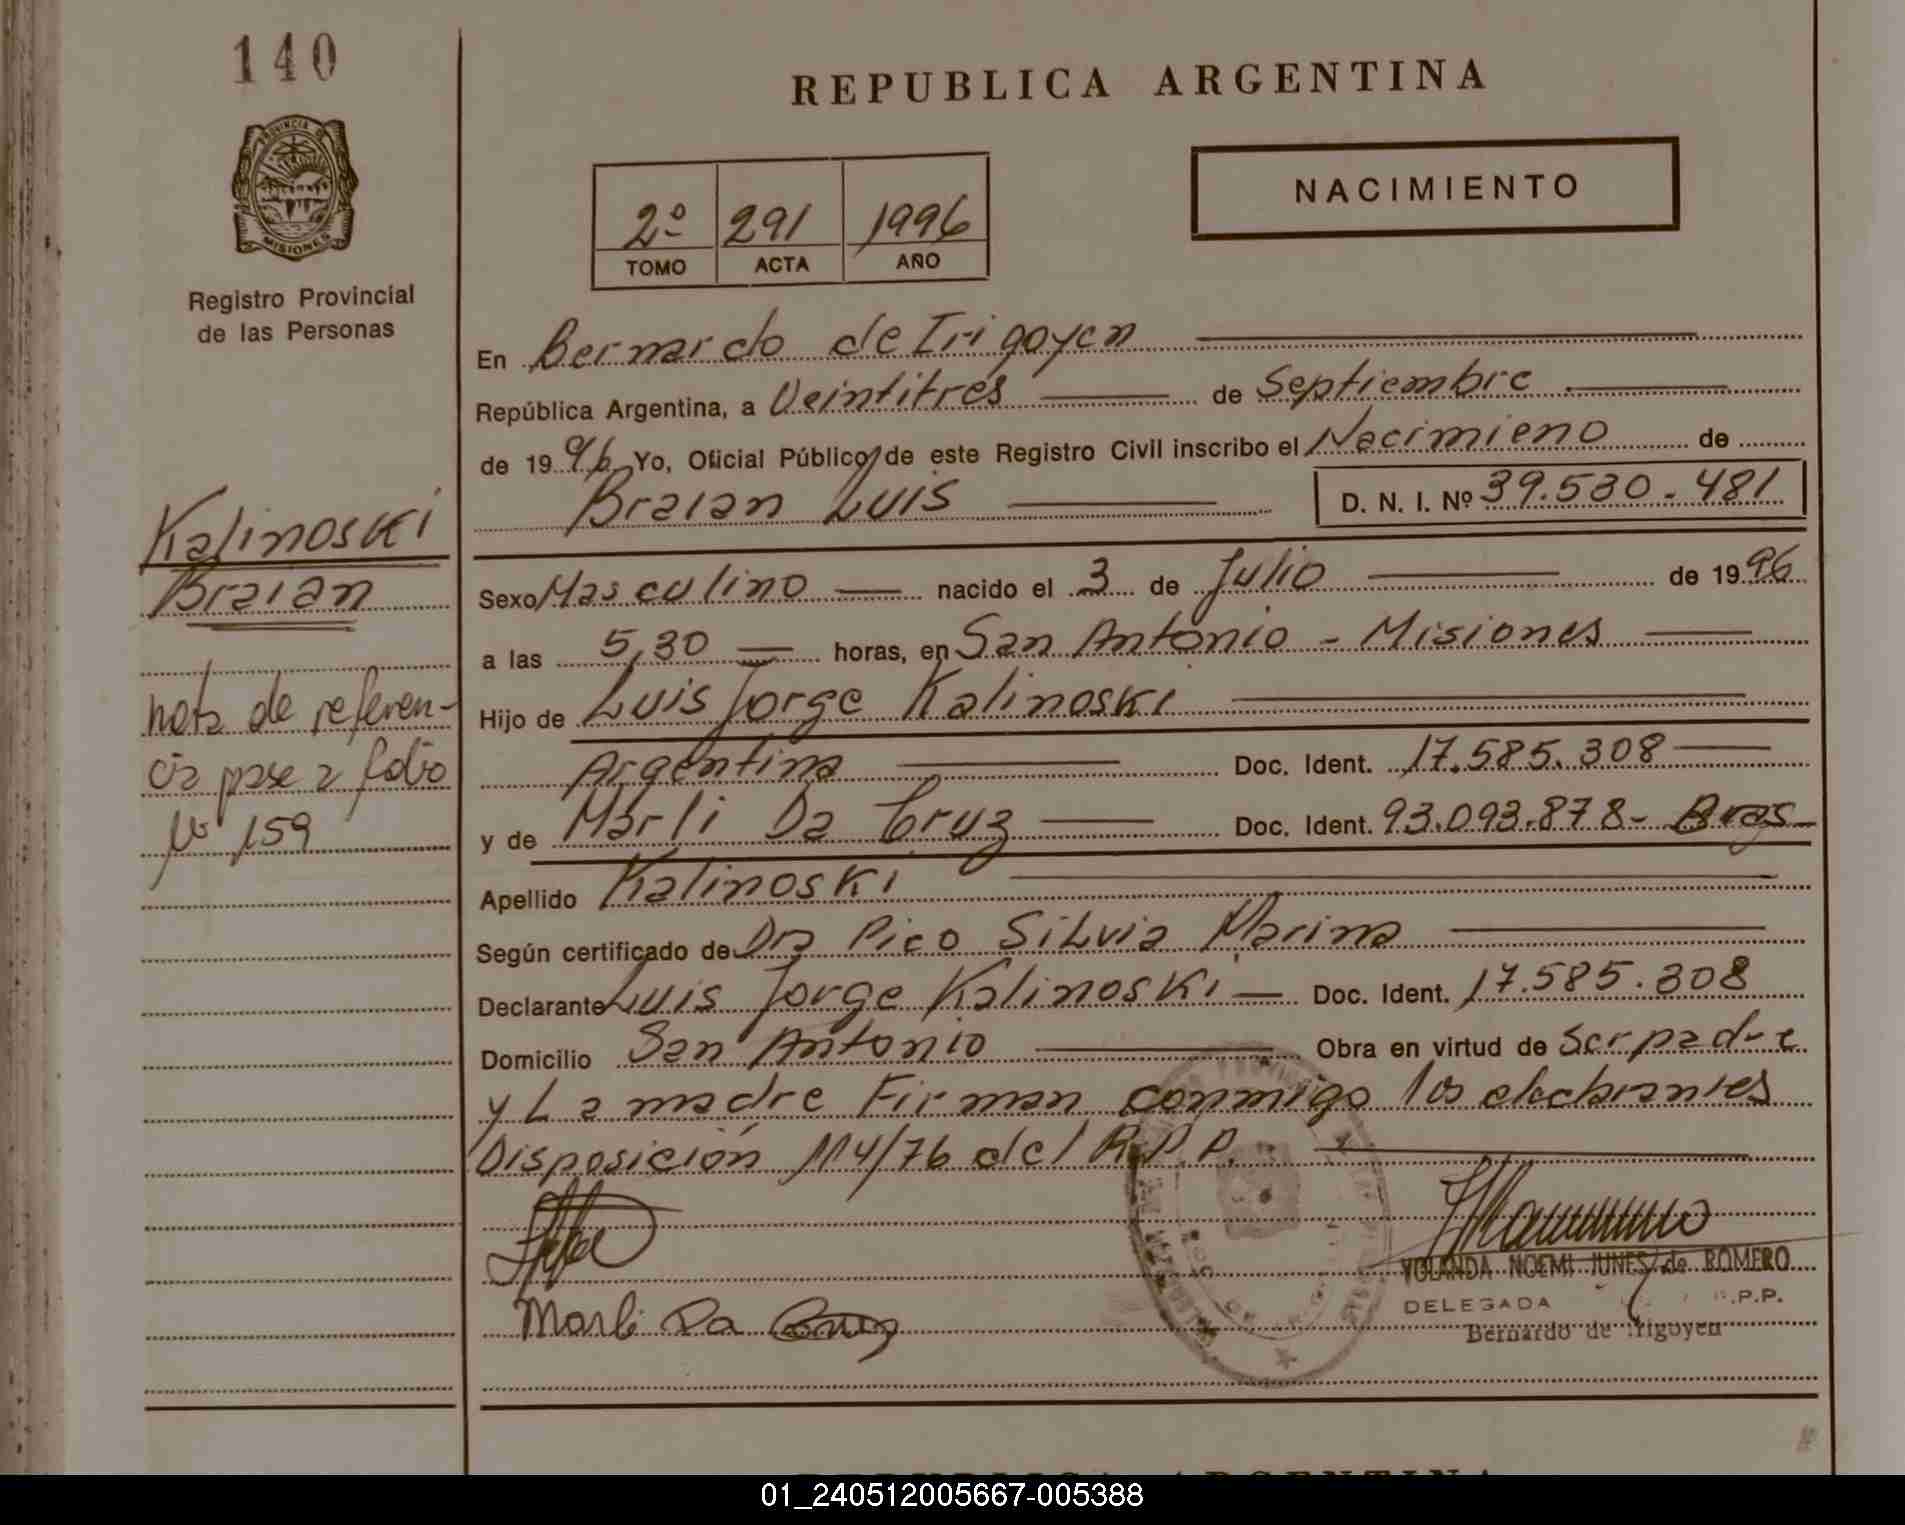 140
REPUBLICA ARGENTINA
PROVINCIA DE
MISIONES
Registro Provincial
de las Personas
NACIMIENTO
2º 291 1996
TOMO ACTA AÑO
En Bernardo de Irigoyen
República Argentina, a Veintitrés de Septiembre
de 1996 Yo, Oficial Público de este Registro Civil inscribo el Nacimieno de
Braian Luis D. N. I. Nº 39.530.481
Kalinoski
Braian
nota de referen-
cia pase a folio
Nº 159
Sexo Masculino nacido el 3 de Julio de 1996
a las 5,30 horas, en San Antonio - Misiones
Hijo de Luis Jorge Kalinoski
Argentina Doc. Ident. 17.585.308
y de Marli Da Cruz Doc. Ident. 93.093.878- Bras-
Apellido Kalinoski
Según certificado de Dra Pico Silvia Marina
Declarante Luis Jorge Kalinoski Doc. Ident. 17.585.308
Domicilio San Antonio Obra en virtud de Ser padre
y La madre Firman conmigo los declarantes
Disposición 114/76 del R.P.P.
Marli Da Cruz
YOLANDA NOEMI JUNES de ROMERO
DELEGADA P.P.
Bernardo de Irigoyen
REPUBLICA ARGENTINA
01_240512005667-005388